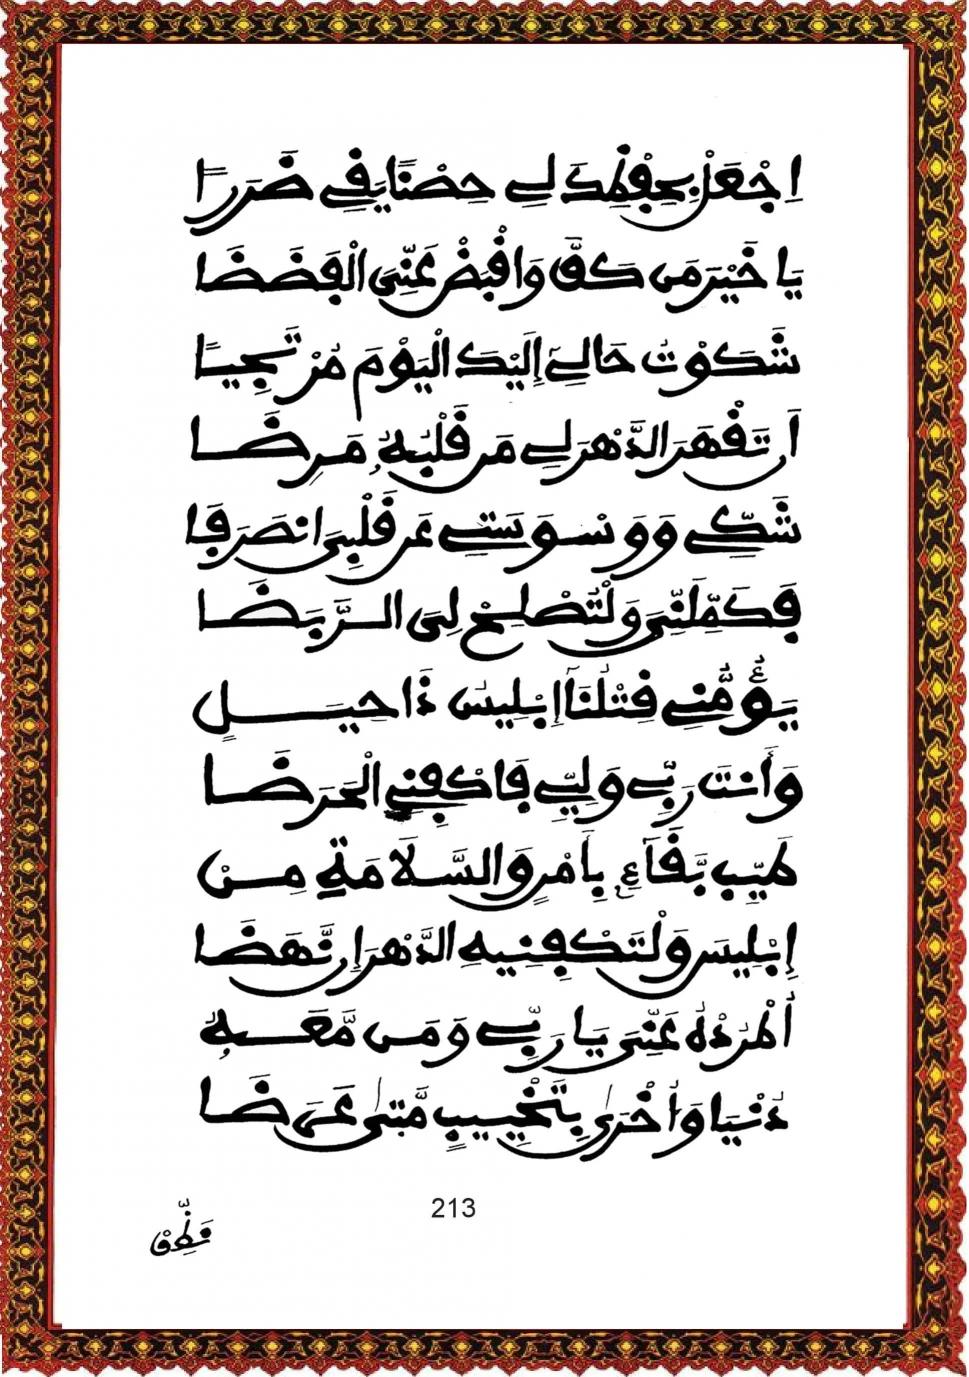 اِجْعَلْ بِحِفْظِكَ لِي حِصْنًا يَفِي ضَرَرًا
يَا خَيْرَ مَن كَفَّ وَاقْبِضْ عَنِّيَ
شَكَوْتُ حَالِي إِلَيْكَ الْيَوْمَ مُرْتَجِيًا
أَن تَقْهَرَ الدَّهْرَ لِي مَن قَلْبُهُ مَرِضَا
شَكِّي وَوَسْوَسَتِي عَن قَلْبِيَ انصَرَفَا
فَكَمِّلَنِّي وَلْتُصْلِحْ لِيَ الرَّبَضَا
يَؤُمُّنِي قِتْلُنَا إِبْلِيسُ ذَا حِيَلٍ
وَأَنتَ رَبِّي وَلِيِّي فَاكْفِنِي الْحَرَضَا
طَيِّبْ بَقَائِي بِأَمْنٍ وَالسَّلَامَةِ مِنْ
إِبْلِيسَ وَلْتَكْفِنِيهِ الدَّهْرَ إِن نَّهَضَا
اُطْرُدْهُ عَنِّيَ يَا رَبِّي وَمَن مَّعَهُ
دُنْيَا وَأُخْرَى بِتَخْيِيبٍ مَّتَى عَرَضَا
213